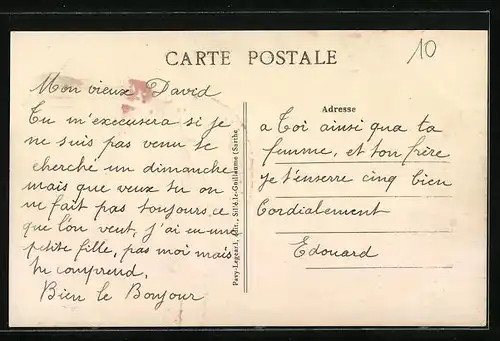 CARTE POSTALE
10
Mon vieux David
Tu m'execusera si je
ne suis pas venu te
cherché un dimanche
mais que veux tu on
ne fait pas toujours ce
que l'on veut, j'ai eu une
petite fille, pas moi mais
tu comprend,
Bien le Bonjour
Pavy-Legeard, édit., Sillé-le-Guillaume (Sarthe)
Adresse
a Toi ainsi qua ta
femme, et ton frère
je t'enserre cinq bien
Cordialement
Edouard